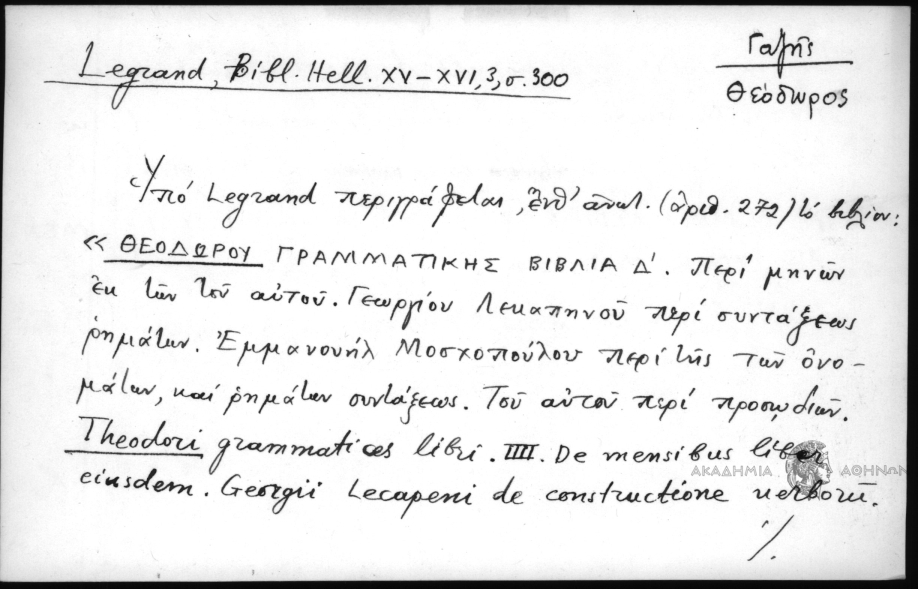 Legrand, Bibl. Hell. XV–XVI, 3, σ. 300
Γαζῆς
Θεόδωρος
Ὑπό Legrand περιγράφεται, ἐνθ' ἀνωτ. (ἀριθ. 272) τό βιβλίον:
« ΘΕΟΔΩΡΟΥ ΓΡΑΜΜΑΤΙΚΗΣ ΒΙΒΛΙΑ Δ'. Περί μηνῶν
ἐκ τῶν τοῦ αὐτοῦ. Γεωργίου Λεκαπηνοῦ περί συντάξεως
ῥημάτων. Ἐμμανουήλ Μοσχοπούλου περί τῆς τῶν ὀνο-
μάτων, καί ῥημάτων συντάξεως. Τοῦ αὐτοῦ περί προσῳδιῶν.
Theodori grammatices libri. IIII. De mensibus liber
eiusdem. Georgii Lecapeni de constructione uerborū.
./.
ΑΚΑΔΗΜΙΑ ΑΘΗΝΩΝ